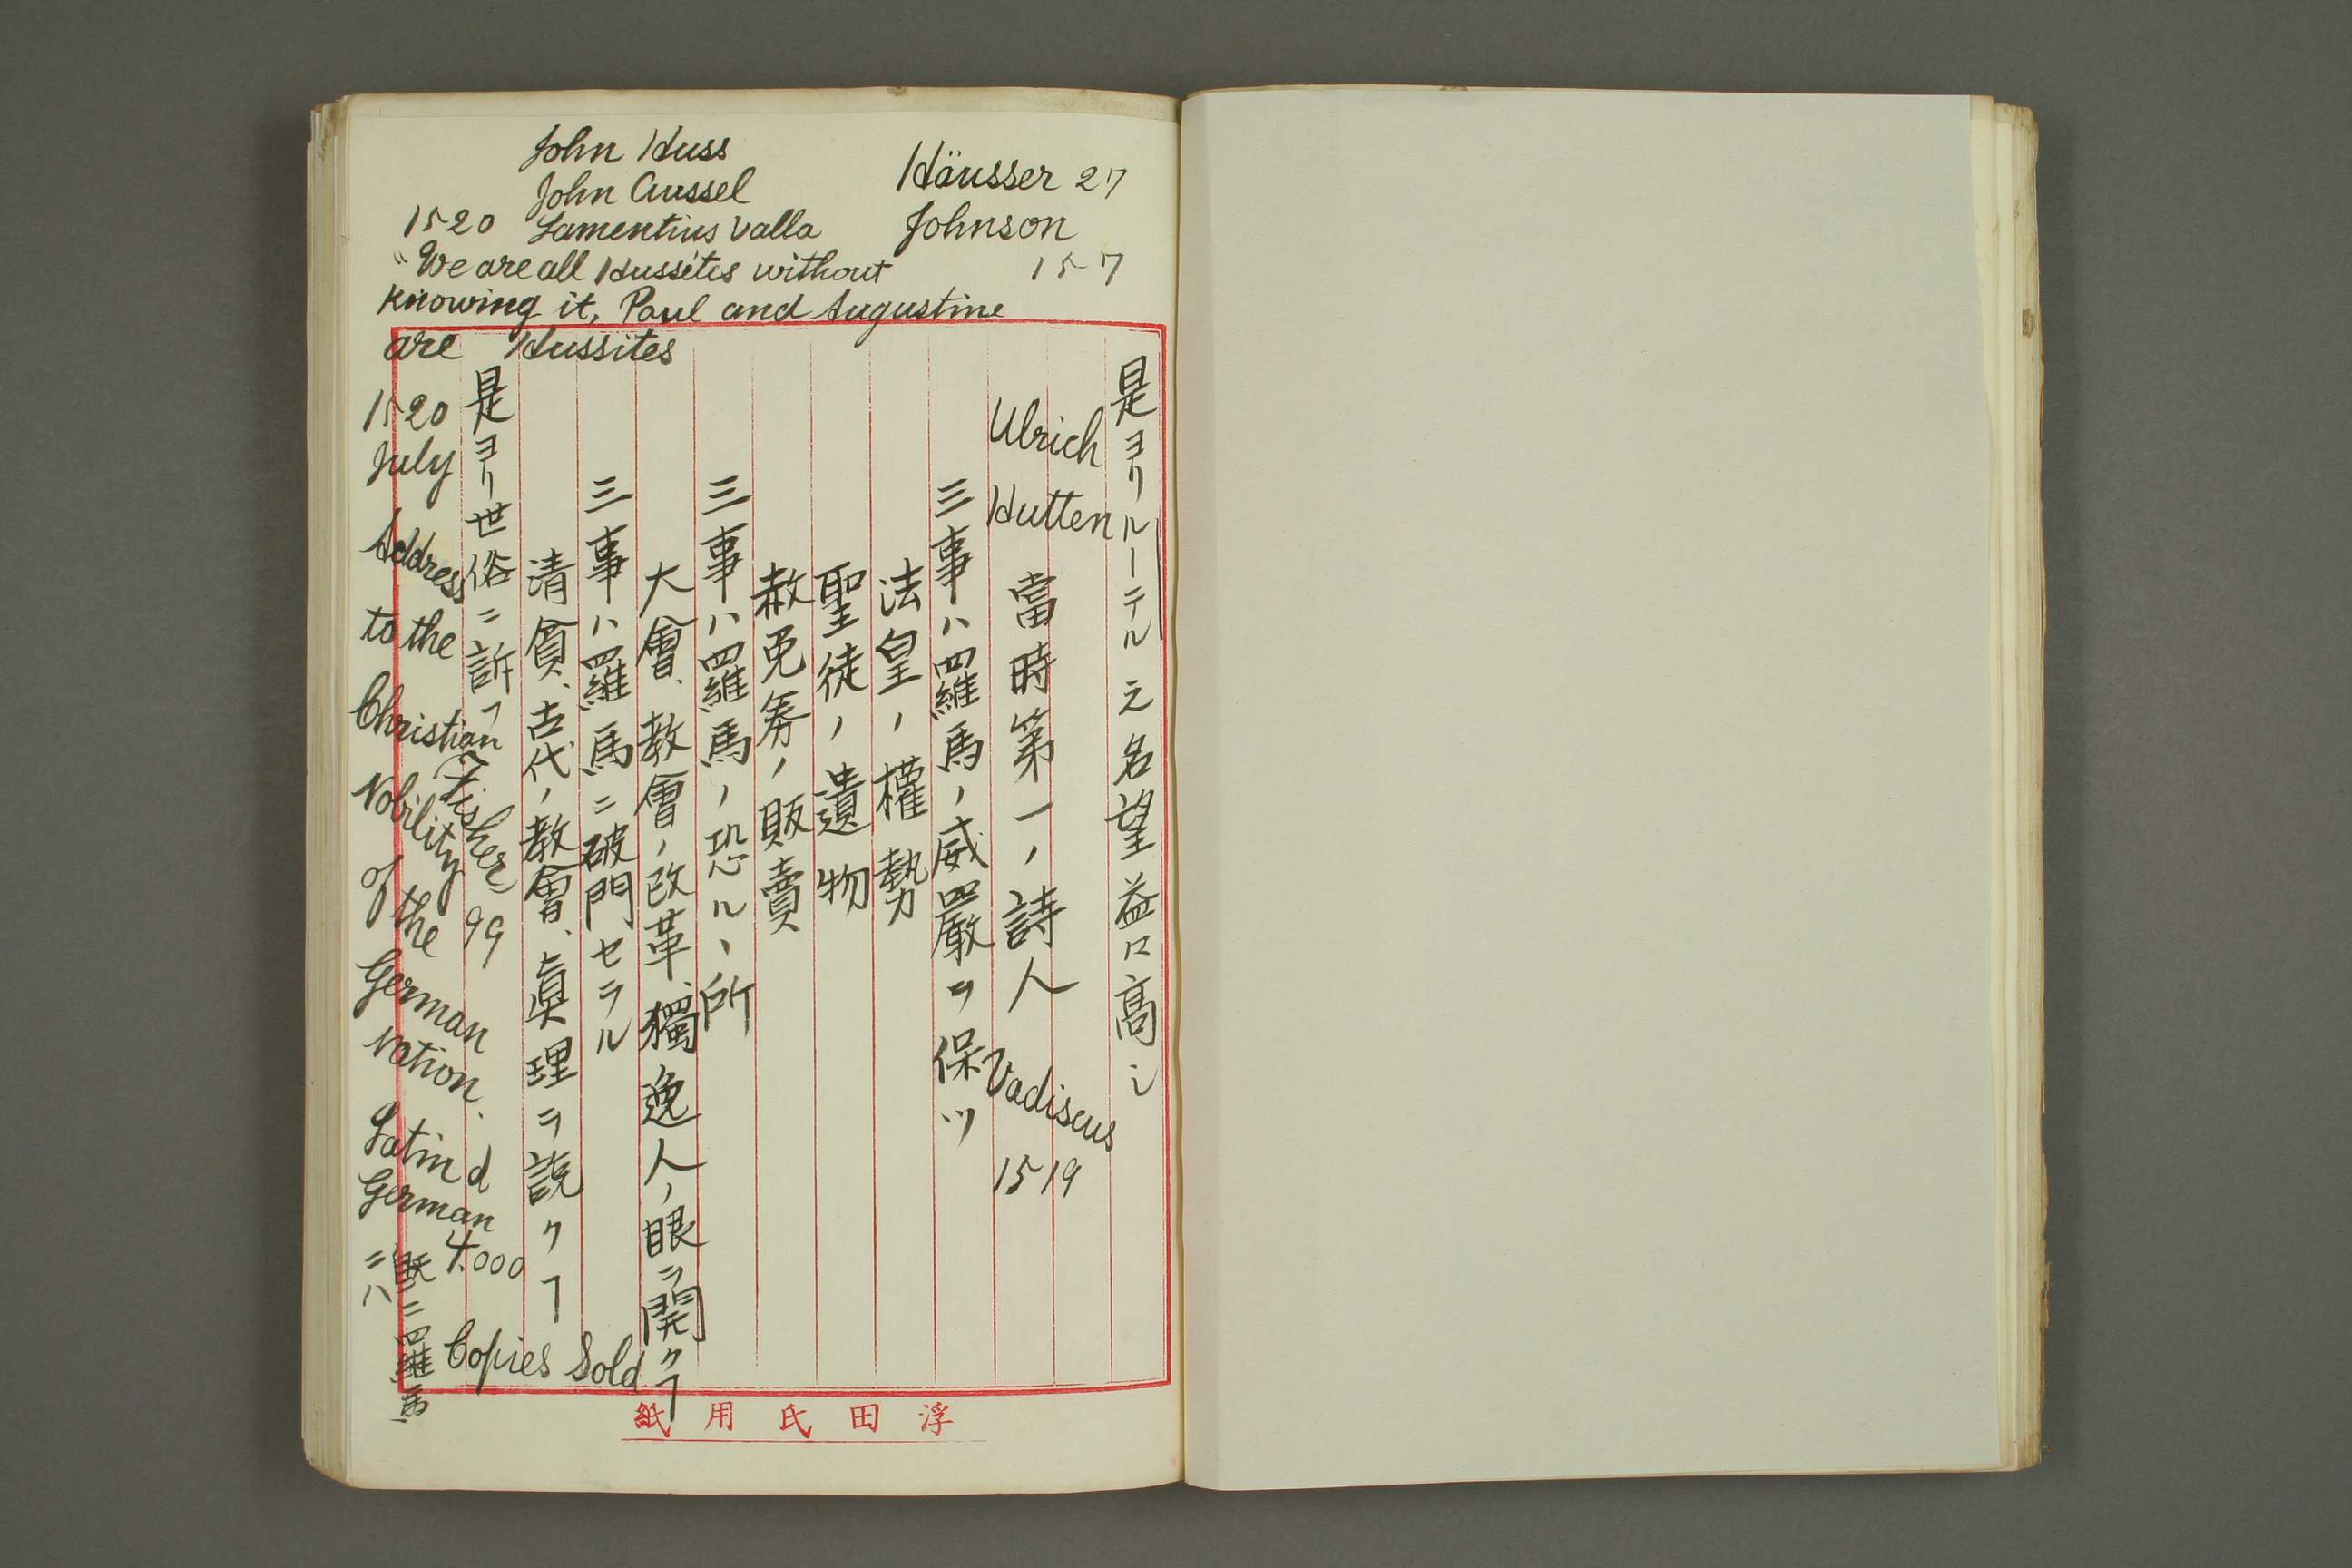 John Huss
John Cussel
1520 Lamentius Valla
"We are all Hussites without
knowing it, Paul and Augustine
are Hussites
Häusser 27
Johnson
157
是ヨリルーテル之名望益〻高シ
Ulrich Hutten 當時第一ノ詩人 Vadiscus 1519
三事ハ羅馬ノ威嚴ヲ保ツ
法皇ノ權勢
聖徒ノ遺物
赦免券ノ販賣
三事ハ羅馬ノ恐ルヽ所
大會、教會ノ改革、獨逸人ノ眼ヲ開クヿ
三事ハ羅馬ニ破門セラル
清貧、古代ノ教會、眞理ヲ説クヿ
是ヨリ世俗ニ訴フ
Fisher 99
1520
July
Address
to the
Christian
Nobility
of the
German
Nation.
Latin d
German
4.000
Copies Sold
既ニ羅馬
ニハ
浮田氏用紙